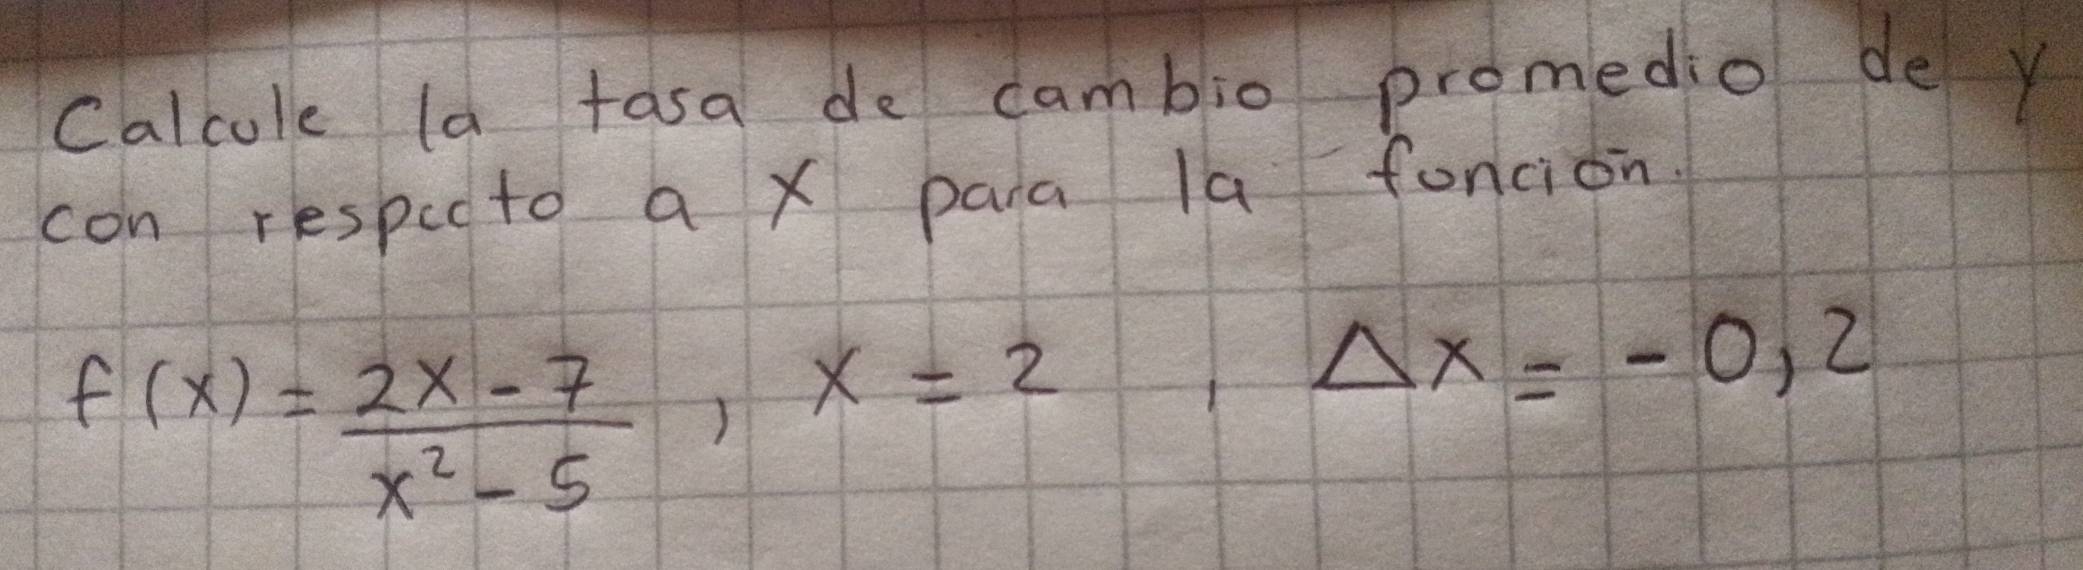 Calcule la tasa de cambio promedio de y
con respecto a x para la función.
f(x) = \frac{2x-7}{x^2-5} , x = 2 , Δx = -0,2